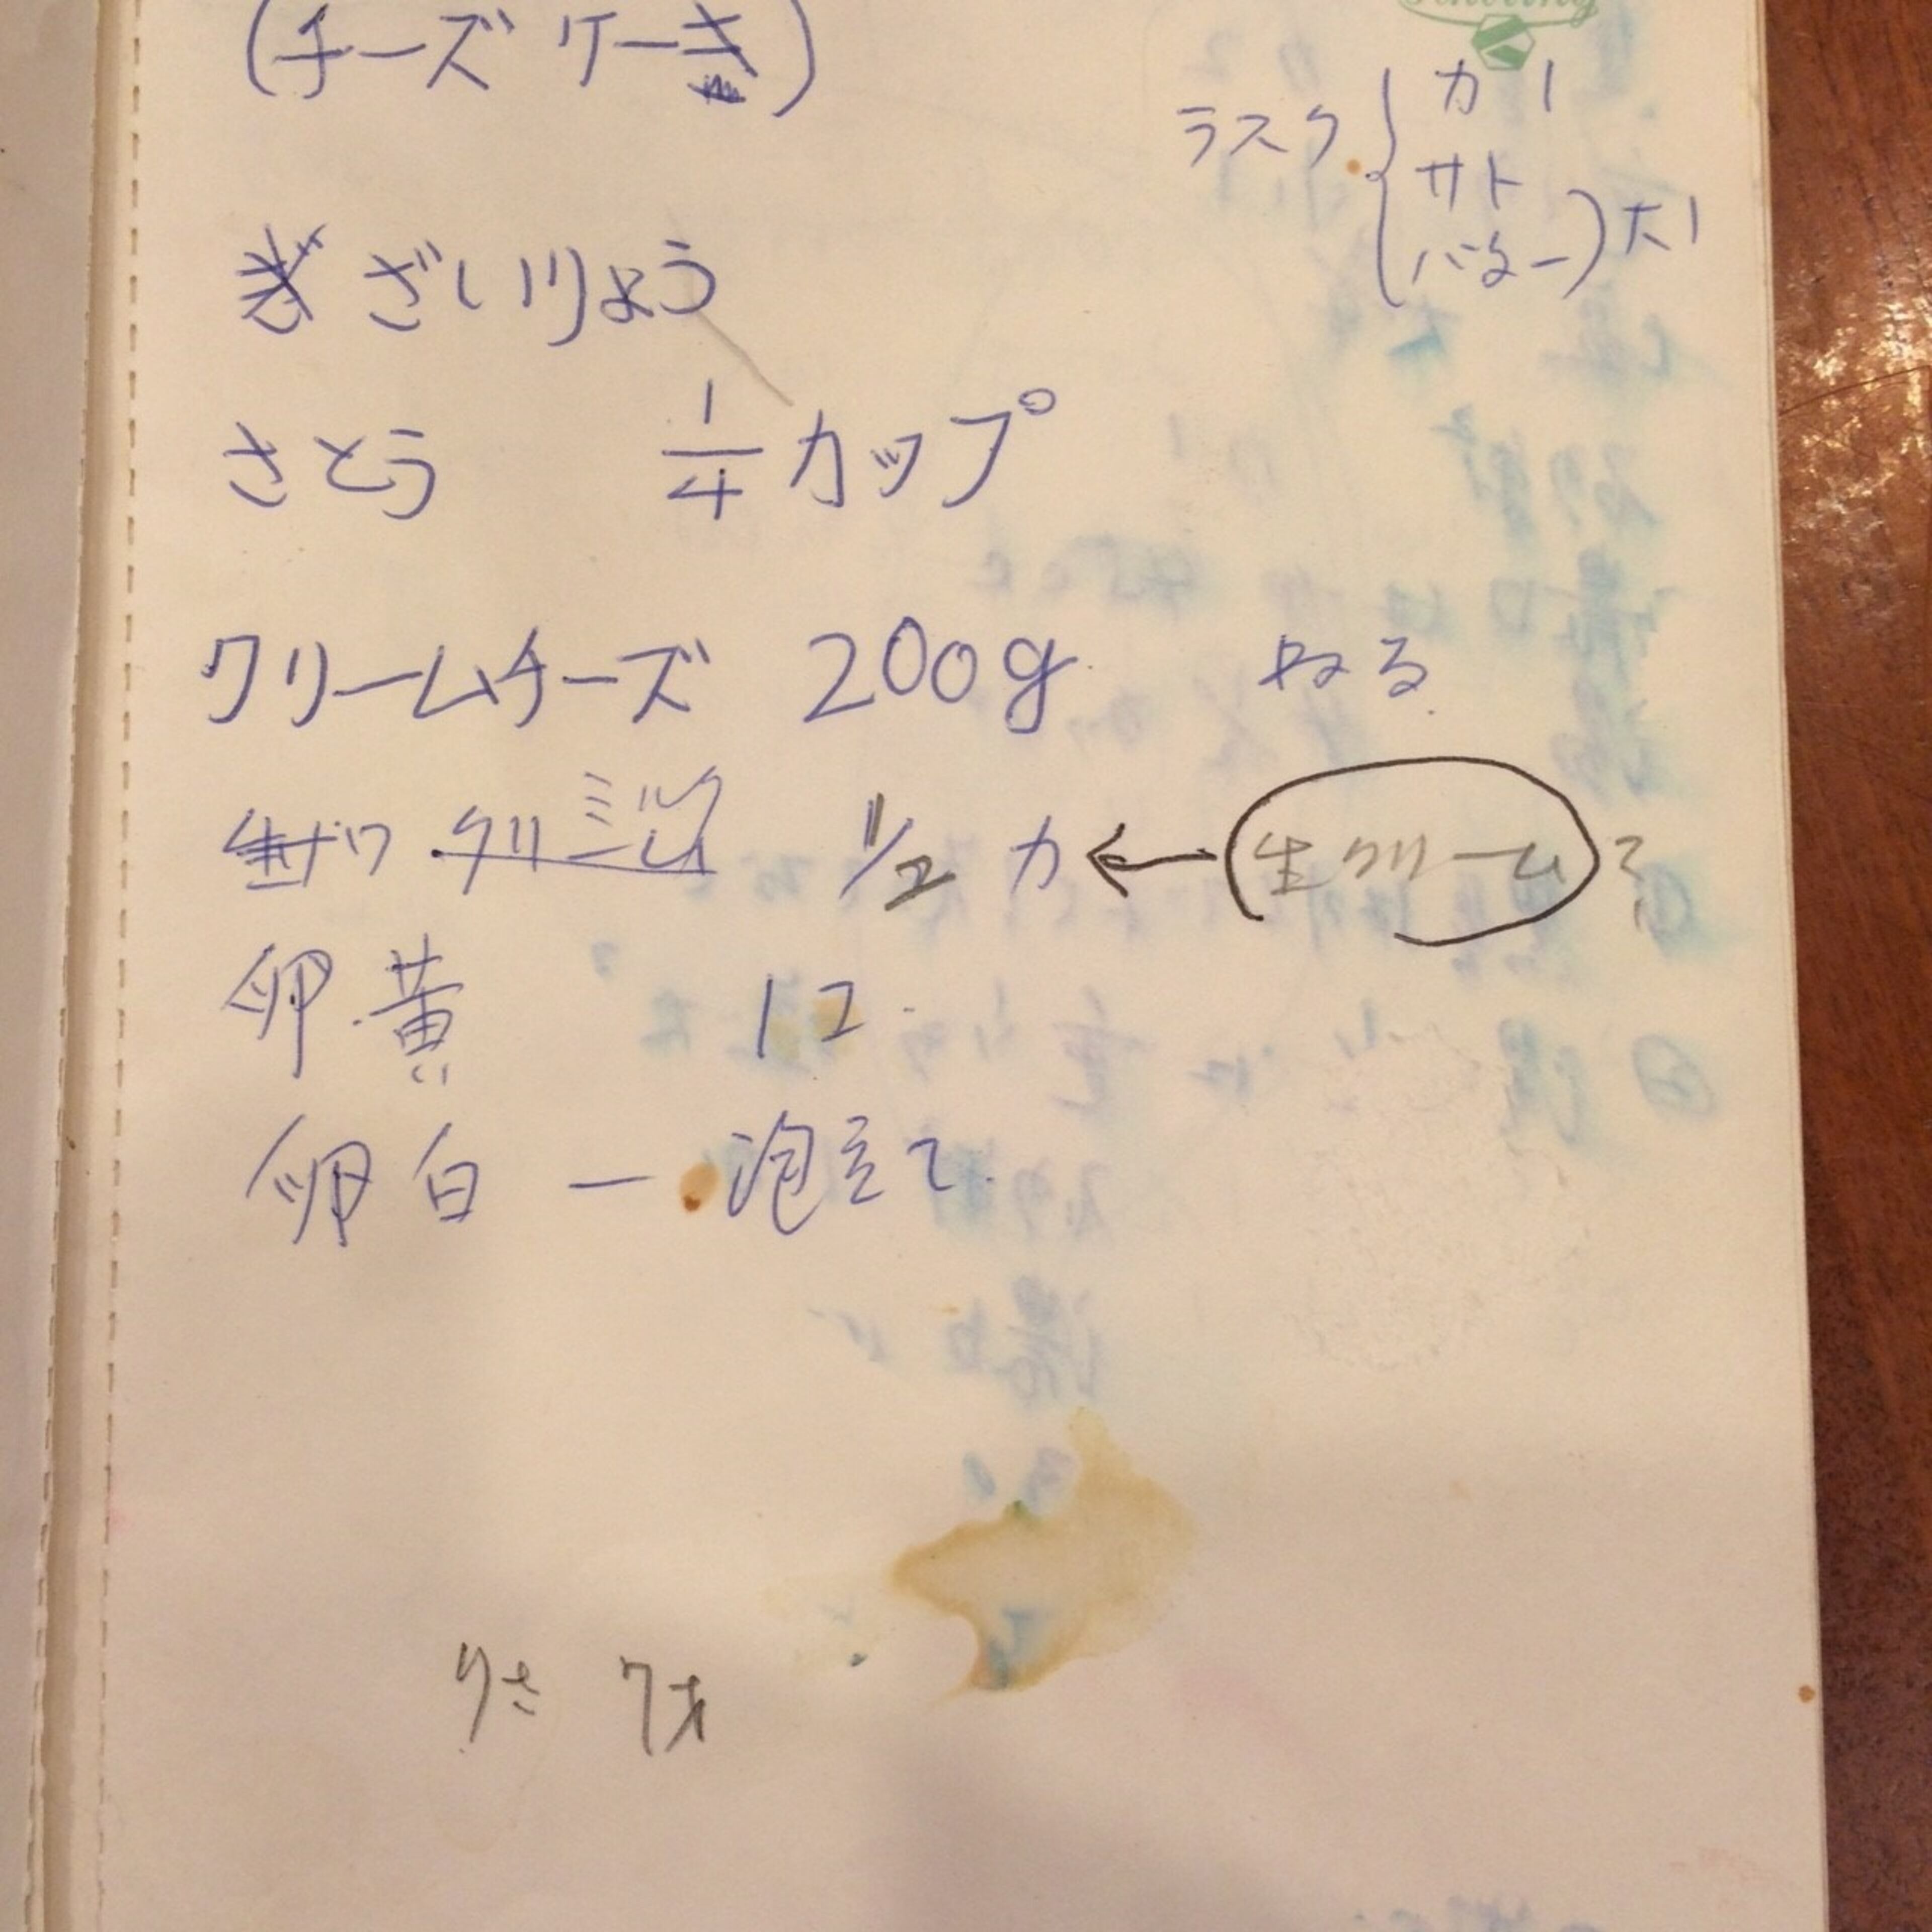 (チーズケーキ)
ラスク
カ 1
サト
バター) 大1
ざいりょう
さとう 1/4 カップ
クリームチーズ 200g ねる
ミルク 1/2 カ ← 生クリーム?
卵黄 1コ
卵白 ー 泡立て
りさ 7才